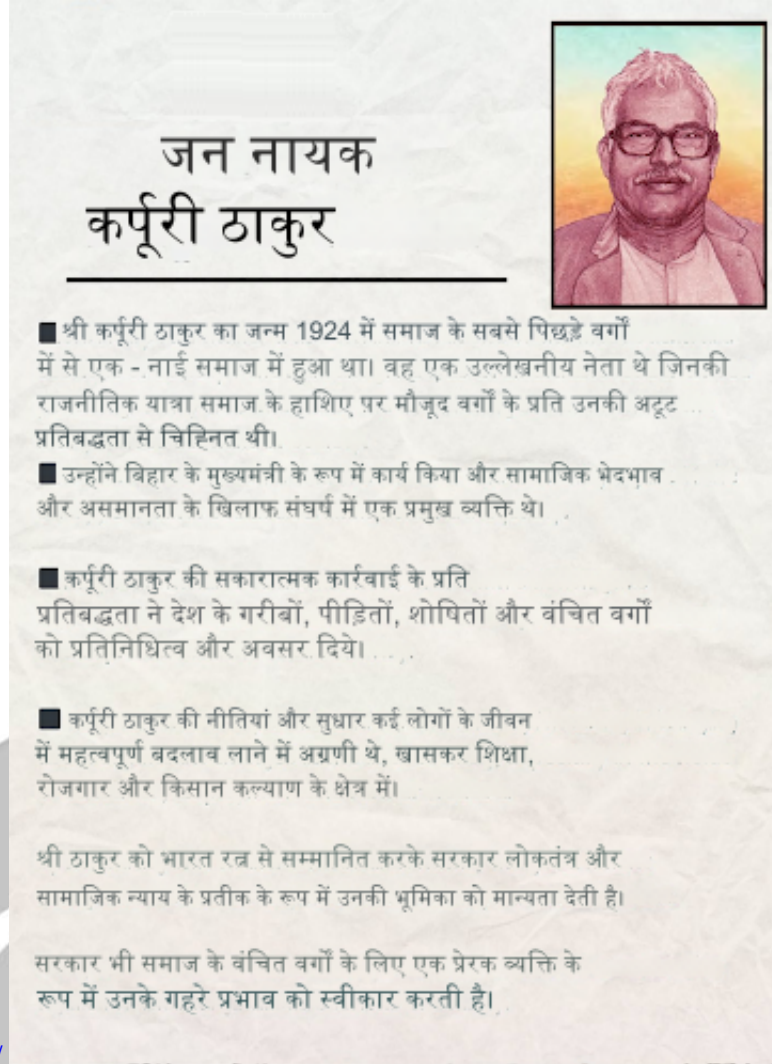 जन नायक
कर्पूरी ठाकुर
श्री कर्पूरी ठाकुर का जन्म 1924 में समाज के सबसे पिछड़े वर्गों
में से एक - नाई समाज में हुआ था। वह एक उल्लेखनीय नेता थे जिनकी
राजनीतिक यात्रा समाज के हाशिए पर मौजूद वर्गों के प्रति उनकी अटूट
प्रतिबद्धता से चिह्नित थी।
उन्होंने बिहार के मुख्यमंत्री के रूप में कार्य किया और सामाजिक भेदभाव
और असमानता के खिलाफ संघर्ष में एक प्रमुख व्यक्ति थे।
कर्पूरी ठाकुर की सकारात्मक कार्रवाई के प्रति
प्रतिबद्धता ने देश के गरीबों, पीड़ितों, शोषितों और वंचित वर्गों
को प्रतिनिधित्व और अवसर दिये।
कर्पूरी ठाकुर की नीतियां और सुधार कई लोगों के जीवन
में महत्वपूर्ण बदलाव लाने में अग्रणी थे, खासकर शिक्षा,
रोजगार और किसान कल्याण के क्षेत्र में।
श्री ठाकुर को भारत रत्न से सम्मानित करके सरकार लोकतंत्र और
सामाजिक न्याय के प्रतीक के रूप में उनकी भूमिका को मान्यता देती है।
सरकार भी समाज के वंचित वर्गों के लिए एक प्रेरक व्यक्ति के
रूप में उनके गहरे प्रभाव को स्वीकार करती है।